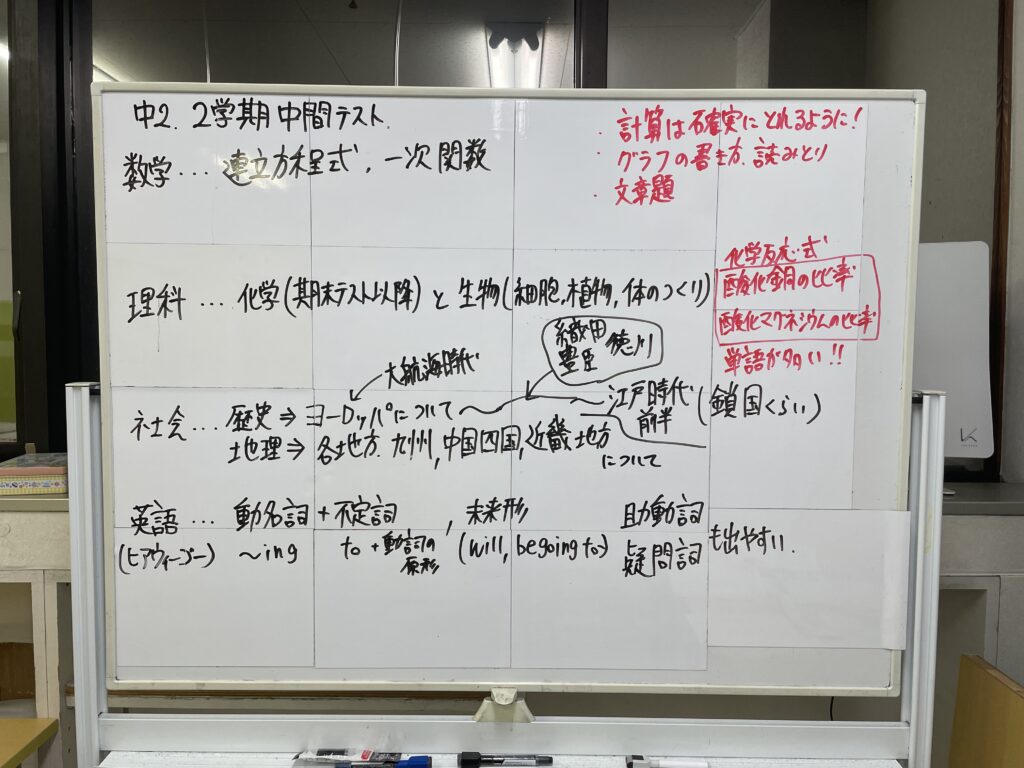 中2. 2学期 中間テスト.
数学… 連立方程式, 一次関数
・計算は確実にとれるように!
・グラフの書き方、読みとり
・文章題
理科 … 化学(期末テスト以降)と生物(細胞,植物,体のつくり)
化学反応式
酸化銅の比率
酸化マグネシウムの比率
単語が多い!!
大航海時代
織田
豊臣
徳川
社会… 歴史⇒ ヨーロッパについて 〜 江戸時代前半 (鎖国くらい)
地理⇒ 各地方. 九州, 中国四国, 近畿地方
について
英語 … 動名詞 + 不定詞 , 未来形 助動詞
(ヒアウィーゴー) 〜ing to + 動詞の原形 (will, be going to) 疑問詞 も出やすい.